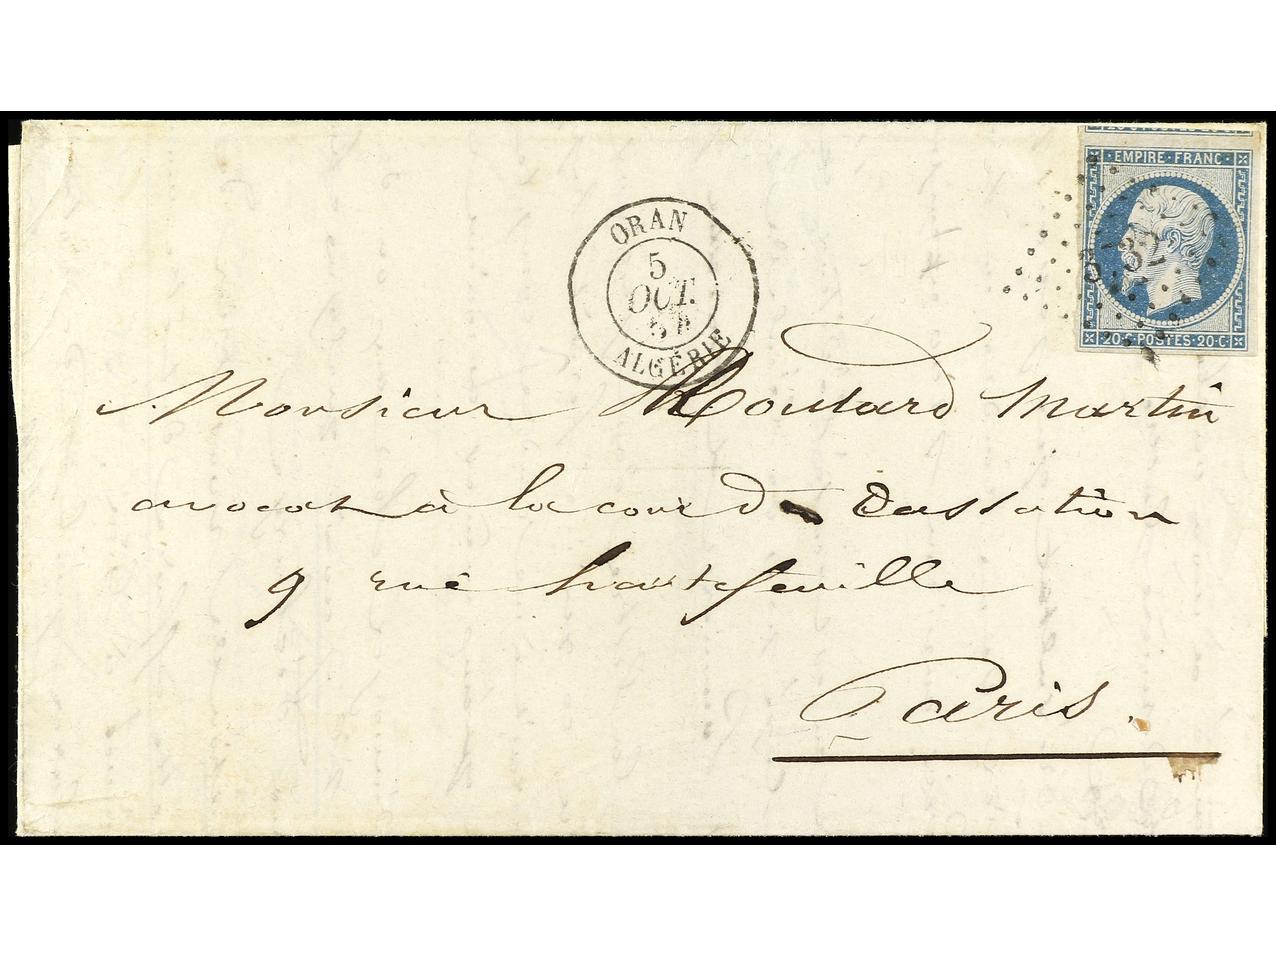 EMPIRE · FRANC ·
3732
20·C·POSTES·20·C·
ORAN
5
OCT.
54
ALGÉRIE
Monsieur Moutard Martin
avocat à la cour d Cassation
9 rue hautefeuille
Paris.